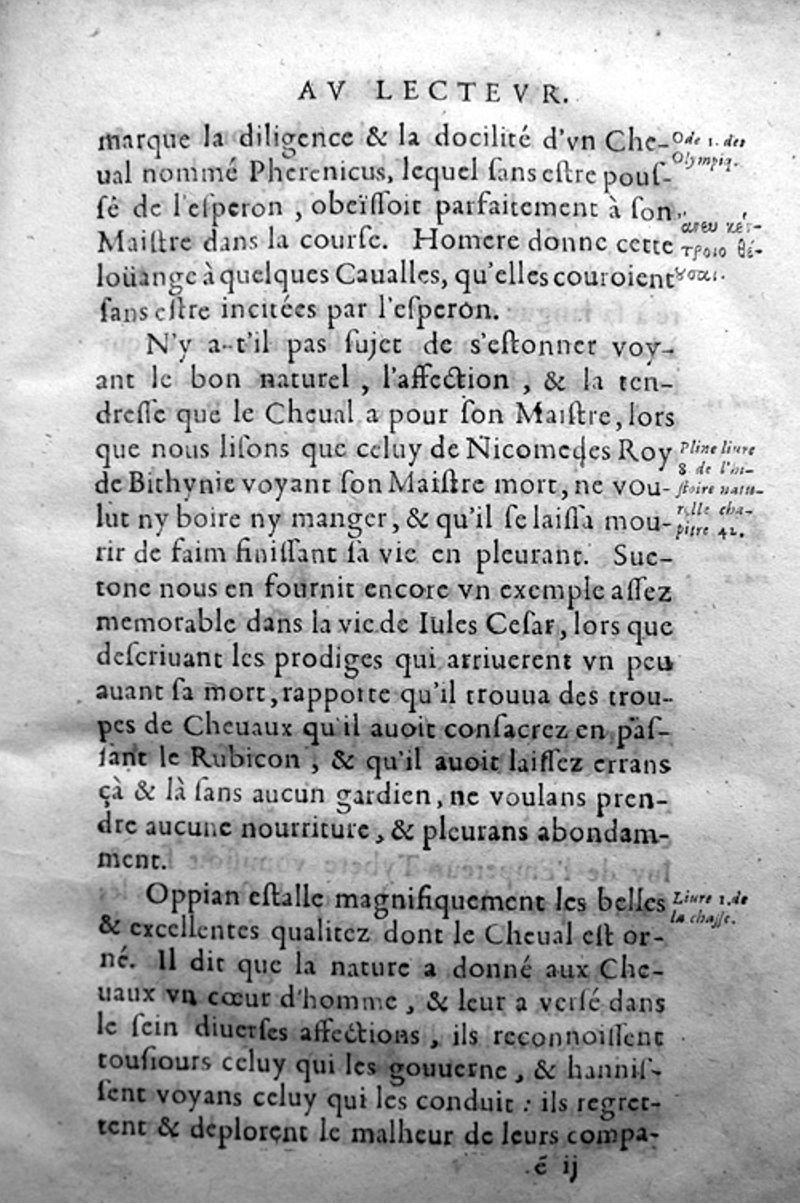 AV LECTEVR.
marque la diligence & la docilité d'vn Che-
ual nommé Pherenicus, lequel ſans eſtre pouſ-
ſé de l'eſperon, obeïſſoit parfaitement à ſon
Maiſtre dans la courſe. Homere donne cette
loüange à quelques Caualles, qu'elles couroient
ſans eſtre incitées par l'eſperon.
N'y a-t'il pas ſujet de s'eſtonner voy-
ant le bon naturel, l'affection, & la ten-
dreſſe que le Cheual a pour ſon Maiſtre, lors
que nous liſons que celuy de Nicomedes Roy
de Bithynie voyant ſon Maiſtre mort, ne vou-
lut ny boire ny manger, & qu'il ſe laiſſa mou-
rir de faim finiſſant ſa vie en pleurant. Sue-
tone nous en fournit encore vn exemple aſſez
memorable dans la vie de Iules Ceſar, lors que
deſcriuant les prodiges qui arriuerent vn peu
auant ſa mort, rapporte qu'il trouua des trou-
pes de Cheuaux qu'il auoit conſacrez en paſ-
ſant le Rubicon, & qu'il auoit laiſſez errans
çà & là ſans aucun gardien, ne voulans pren-
dre aucune nourriture, & pleurans abondam-
ment.
Oppian eſtalle magnifiquement les belles
& excellentes qualitez dont le Cheual eſt or-
né. Il dit que la nature a donné aux Che-
uaux vn cœur d'homme, & leur a verſé dans
le ſein diuerſes affections, ils reconnoiſſent
touſiours celuy qui les gouuerne, & hanniſ-
ſent voyans celuy qui les conduit : ils regret-
tent & deplorent le malheur de leurs compa-
é ij
Ode 1. des
Olympiq.
ατευ κέν-
τροιο θέ-
ȣσαι.
Pline liure
8 de l'hi-
ſtoire natu-
relle cha-
pitre 42.
Liure 1. de
la chaſſe.